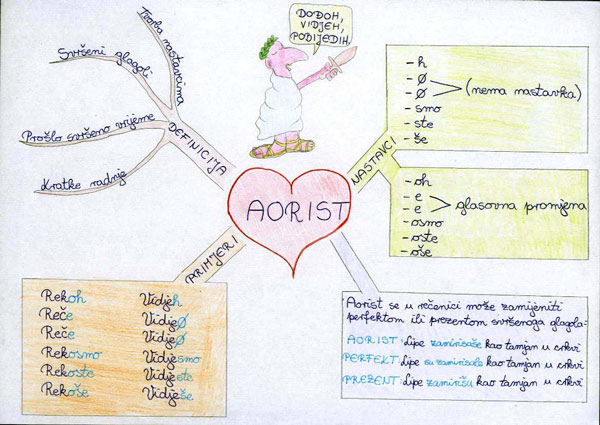 DOĐOH,
VIDJEH,
POBIJEDIH.
AORIST
DEFINICIJA
Tvorba nastavcima
Svršeni glagoli
Prošlo svršeno vrijeme
Kratke radnje
NASTAVCI
- h
- Ø
- Ø (nema nastavka)
- smo
- ste
- še
- oh
- e
- e glasovna promjena
- osmo
- oste
- oše
PRIMJERI
Rekoh Vidjeh
Reče VidjeØ
Reče VidjeØ
Rekosmo Vidjesmo
Rekoste Vidjeste
Rekoše Vidješe
Aorist se u rečenici može zamijeniti
perfektom ili prezentom svršenoga glagola.
AORIST: Lipe zamirisaše kao tamjan u crkvi
PERFEKT: Lipe su zamirisale kao tamjan u crkvi
PREZENT: Lipe zamirišu kao tamjan u crkvi